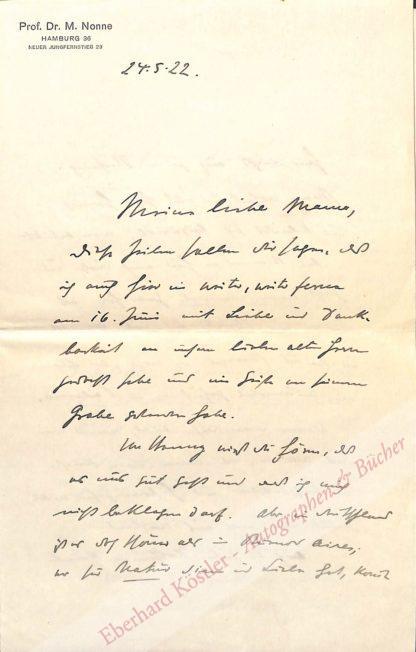 Prof. Dr. M. Nonne
HAMBURG 36
NEUER JUNGFERNSTIEG 23
24.5.22.
Meine liebe Mama,
diese Zeilen sollen dir sagen, daß
ich auch hier in weiter, weiter Ferne
am 16. Juni mit Liebe und Dank-
barkeit an unsern lieben alten Herrn
gedacht habe und im Geiste an seinem
Grabe gestanden habe.
Von Henny wirst du hören, daß
es uns gut geht und daß ich mich
nicht beklagen darf. Aber in Deutschland
ist es doch schöner als in Buenos Aires,
wer für Natur Sinn und Liebe hat,
Eberhard Köstler - Autographen & Bücher